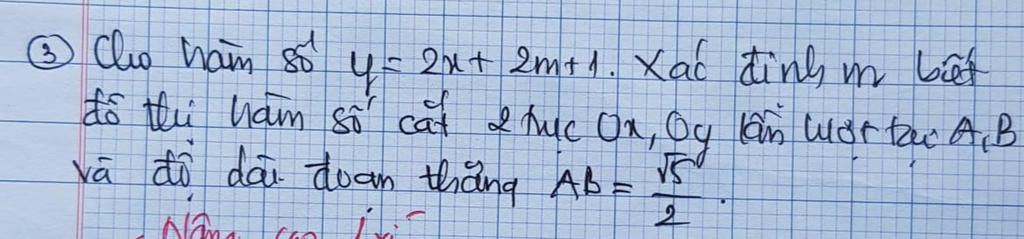 ③ Cho hàm số y = 2x + 2m+1. Xác định m biết
đồ thị hàm số cắt 2 trục Ox, Oy lần lượt tại A, B
và độ dài đoạn thẳng AB = √5/2.